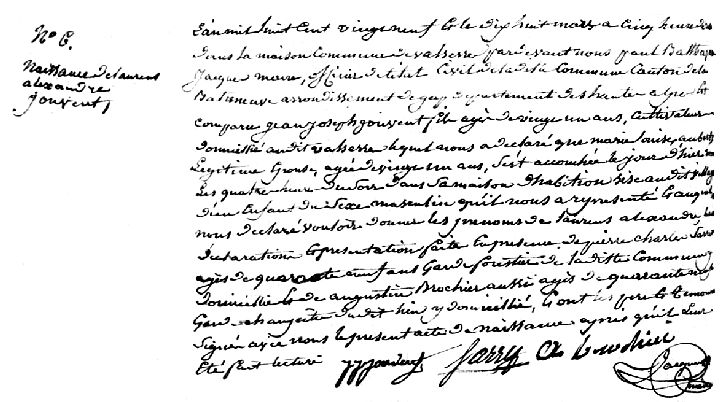 No 6.
Naissance de laurens
alexandre
jouvent
L'an mil huit cent vingt neuf et le dix huit mars a cinq heures
dans la maison Commune de valserre par devant nous paul Balthazar
jacque maire, officier de l'état Civil de la dite Commune Canton de la
Batieneuve arrondissement de gap département des hautes alpes est
comparu jean joseph jouvent fils agé de vingt un ans, Cultivateur
domicilié au dit valserre lequel nous a déclaré que marie louise aubert
Legitime Epouse, agée de vingt un ans, s'est accouchée le jour d'hier
Les quatre heure du soir dans sa maison d'habition sise audit
d'un Enfant du sexe masculin qu'il nous a représenté et auquel
nous déclaré vouloir donner les prénoms de laurens alexandre les
déclaration et présentation faite En presence de pierre charle Sarre
agés de quarante neuf ans Garde forestier de la ditte Commune
domicilié et de augustin Brochier aussi agés de quarante
Garde champetre du dit lieu y domicilié, et ont les pere et temoins
Signés avec nous le present acte de naissance apres qu'il Leur
Eté fait lecture jj jouvent Sarre A brochier jacque
maire